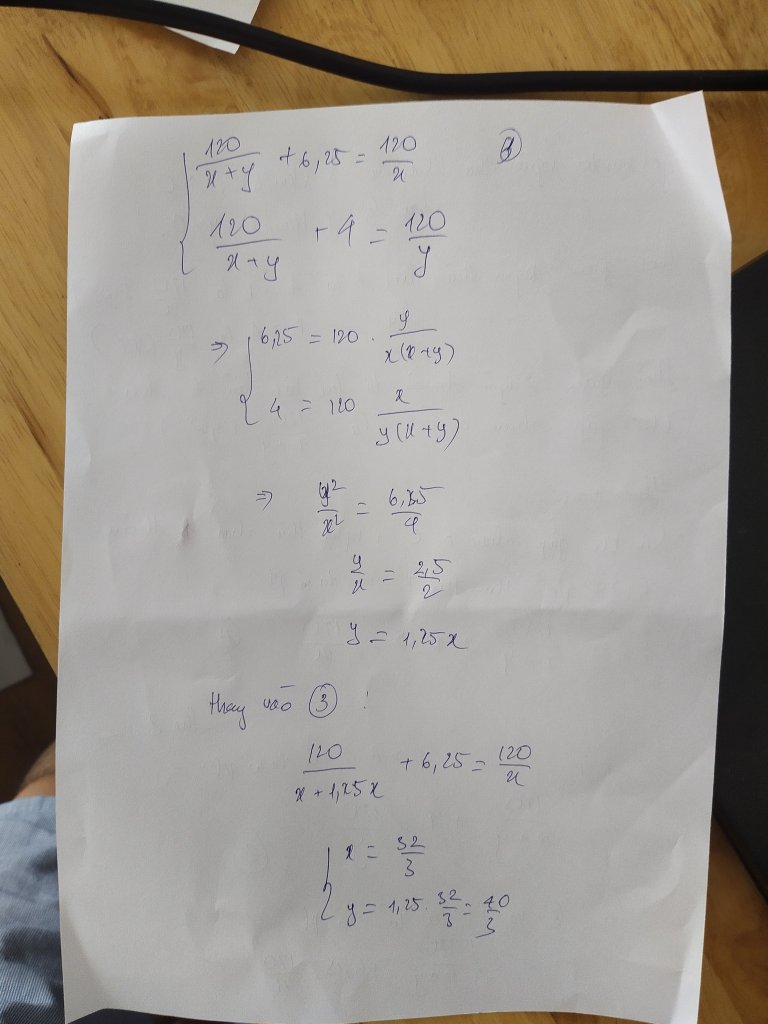 120/(x+y) + 6,25 = 120/x
120/(x+y) + 4 = 120/y
=> 6,25 = 120 . y/(x(x+y))
4 = 120 x/(y(x+y))
=> y²/x² = 6,25/4
y/x = 2,5/2
y = 1,25x
thay vào ③ :
120/(x+1,25x) + 6,25 = 120/x
x = 32/3
y = 1,25 . 32/3 = 40/3